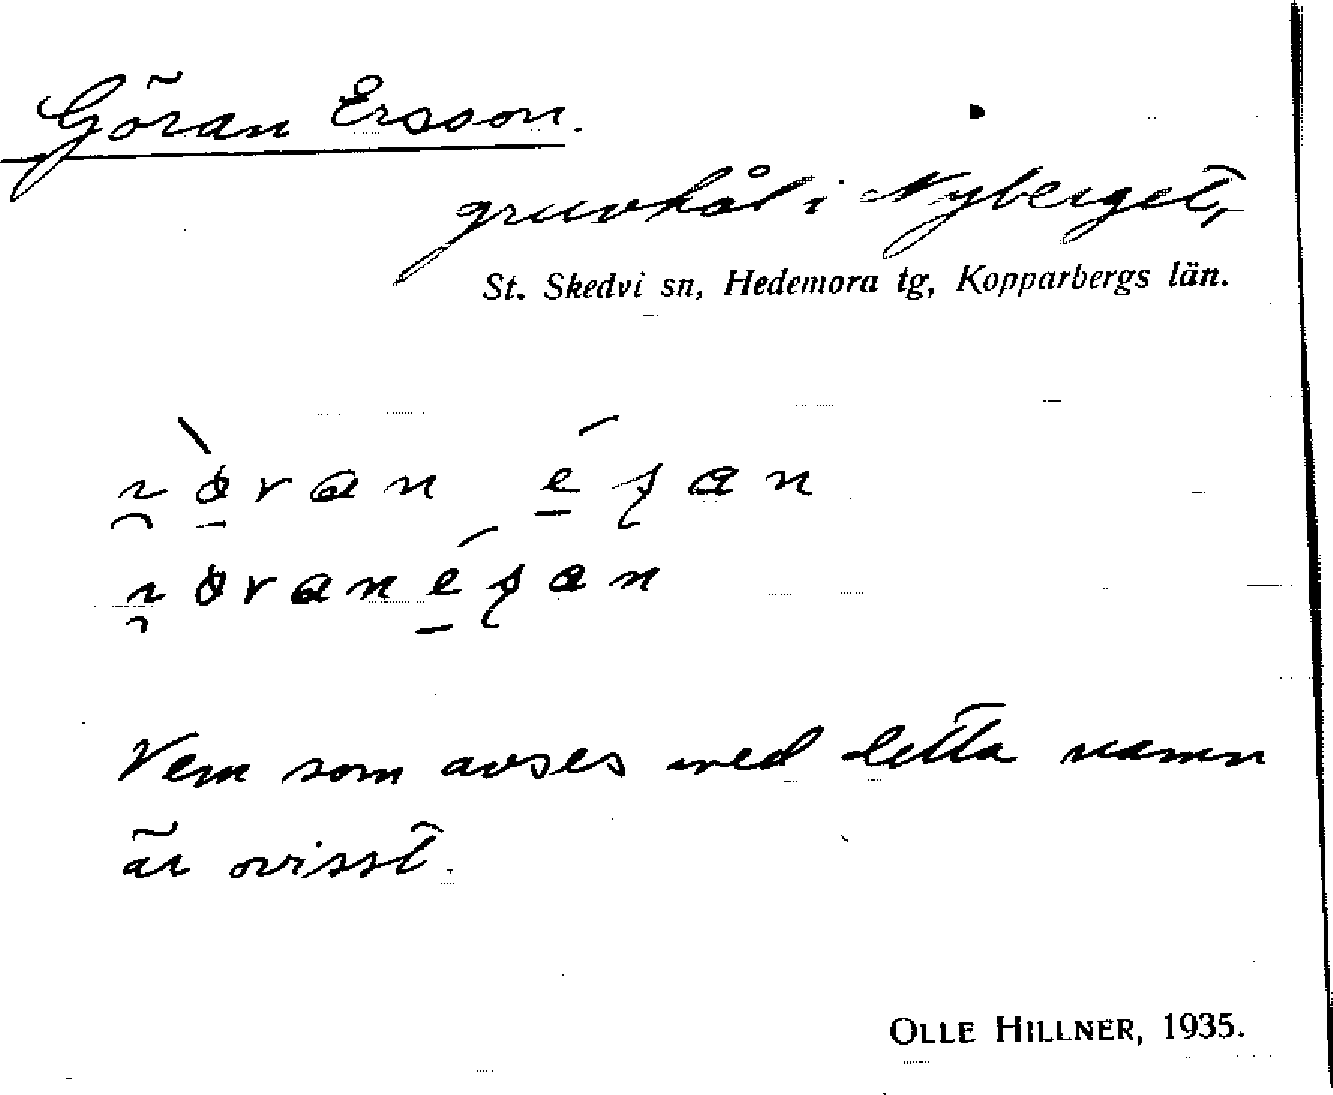 Göran Ersson.
gruvhål i Nyberget,
St. Skedvi sn, Hedemora tg, Kopparbergs län.
Vem som avses med detta namn
är ovisst.
OLLE HILLNER, 1935.